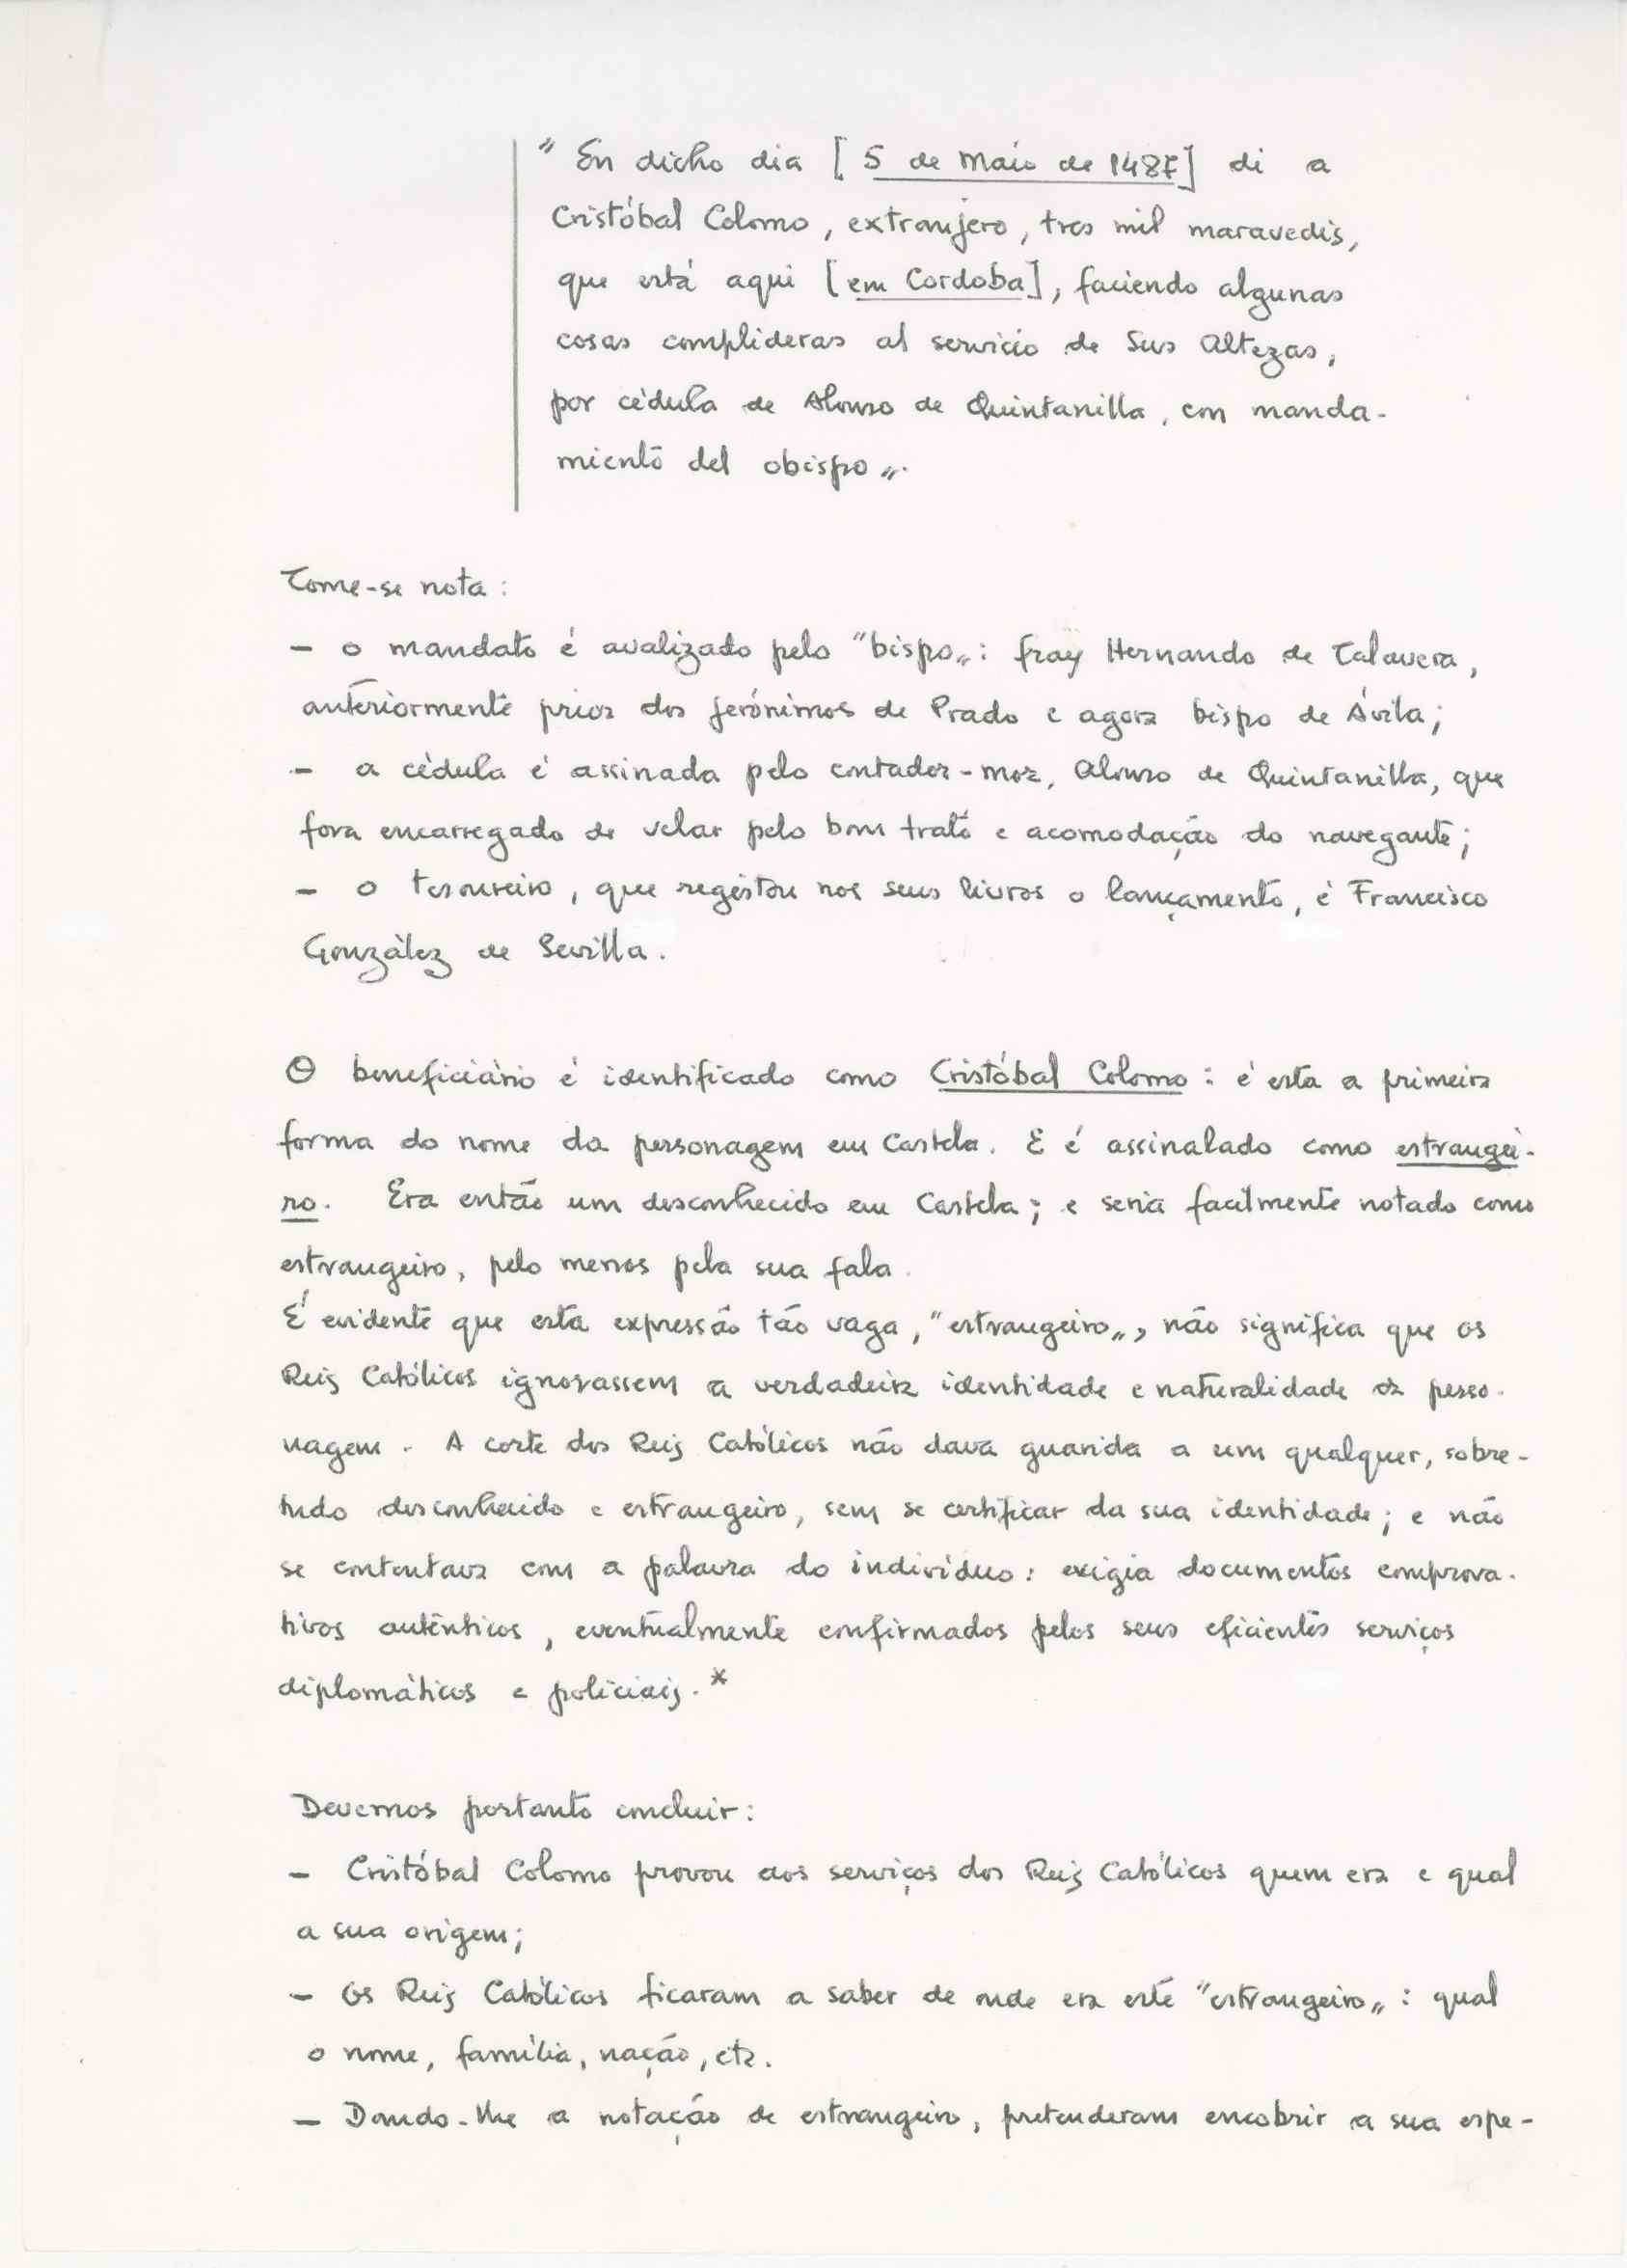 " En dicho dia [ 5 de Maio de 1487] di a
Cristóbal Colomo, extranjero, tres mil maravedis,
que está aqui [em Cordoba], faciendo algunas
cosas complideras al servicio de Sus Altezas,
por cédula de Alonso de Quintanilla, con manda-
miento del obispo„.
Tome-se nota:
- o mandato é avalizado pelo "bispo„: fray Hernando de Talavera,
anteriormente prior dos jerónimos de Prado e agora bispo de Ávila;
- a cédula é assinada pelo contador-mor, Alonso de Quintanilla, que
fora encarregado de velar pelo bom trato e acomodação do navegante;
- o tesoureiro, que registou nos seus livros o lançamento, é Francisco
González de Sevilla.
O beneficiário é identificado como Cristóbal Colomo: é esta a primeira
forma do nome da personagem em Castela. E é assinalado como estrangei-
ro. Era então um desconhecido em Castela; e seria facilmente notado como
estrangeiro, pelo menos pela sua fala.
É evidente que esta expressão tão vaga, "estrangeiro„, não significa que os
Reis Católicos ignorassem a verdadeira identidade e naturalidade da perso-
nagem. A corte dos Reis Católicos não dava guarida a um qualquer, sobre-
tudo desconhecido e estrangeiro, sem se certificar da sua identidade; e não
se contentava com a palavra do indivíduo: exigia documentos comprova-
tivos autênticos, eventualmente confirmados pelos seus eficientes serviços
diplomáticos e policiais.*
Devemos portanto concluir:
- Cristóbal Colomo provou aos serviços dos Reis Católicos quem era e qual
a sua origem;
- Os Reis Católicos ficaram a saber de onde era este "estrangeiro„: qual
o nome, família, nação, etc.
- Dando-lhe a notação de estrangeiro, pretenderam encobrir a sua espe-